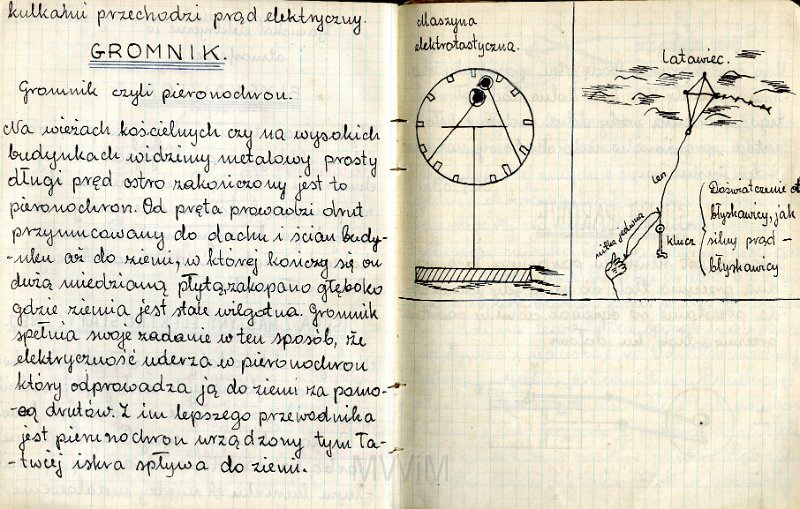 kulkami przechodzi prąd elektryczny.
GROMNIK.
Gromnik czyli pieronochron.
Na wieżach kościelnych czy na wysokich
budynkach widzimy metalowy prosty
długi pręd ostro zakończony jest to
pieronochron. Od pręta prowadzi drut
przymucowany do dachu i ścian budy-
-nku aż do ziemi, w której kończy się on
dużą miedzianą płytą, zakopano głęboko
gdzie ziemia jest stale wilgotna. Gromnik
spełnia swoje zadanie w ten sposób, że
elektryczność uderza w pieronochron
który odprowadza ją do ziemi za pomo-
-cą drutów. Z im lepszego przewodnika
jest pierunochron urządzony tym ła-
-twiej iskra spływa do ziemi.
Maszyna
elektrotastyczna.
Latawiec.
len
nitka jedwabna
klucz
Doświatczenie
błyskawicy, jak
silny prąd
błyskawicy
MWiM